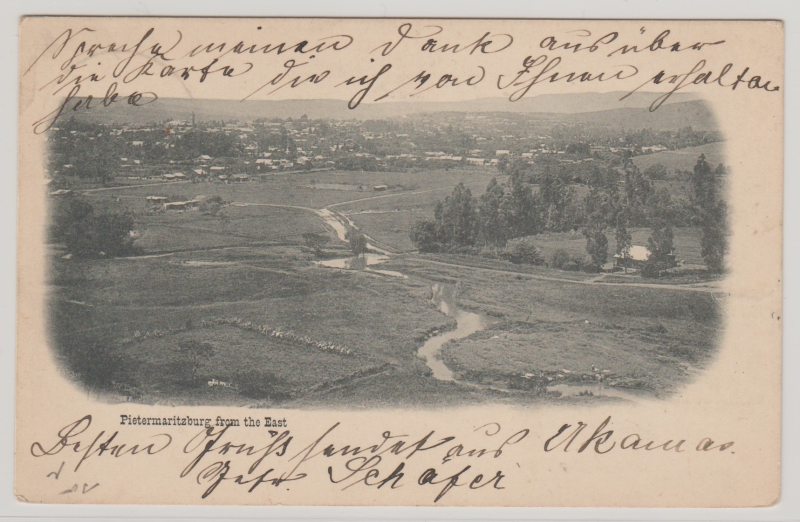 Spreche meinen Dank aus über
die Karte die ich von Ihnen erhalten
habe
Pietermaritzburg from the East
Besten Gruß sendet aus Ukamas.
Schäfer